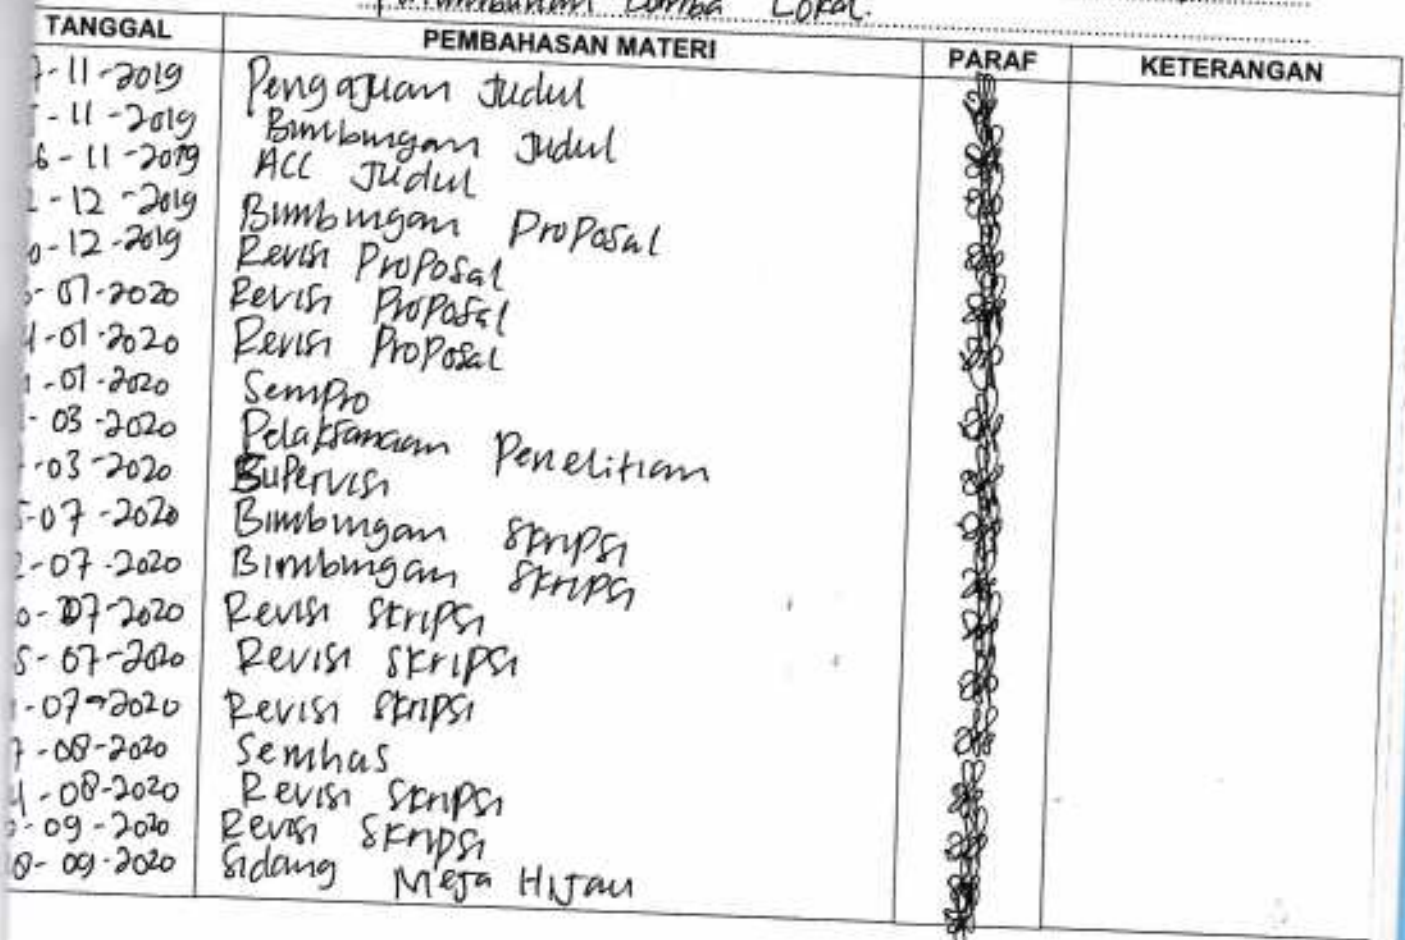 Lomba Lokal.
TANGGAL PEMBAHASAN MATERI PARAF KETERANGAN
-11-2019 Pengajuan Judul
-11-2019 Bimbingan Judul
6-11-2019 ACC Judul
-12-2019 Bimbingan Proposal
0-12-2019 Revisi Proposal
-01-2020 Revisi Proposal
-01-2020 Revisi Proposal
-01-2020 Sempro
-03-2020 Pelaksanaan Penelitian
-03-2020 Supervisi
-07-2020 Bimbingan Skripsi
-07-2020 Bimbingan Skripsi
0-07-2020 Revisi Skripsi
5-07-2020 Revisi Skripsi
-07-2020 Revisi Skripsi
7-08-2020 Semhas
-08-2020 Revisi Skripsi
-09-2020 Revisi Skripsi
8-09-2020 Sidang Meja Hijau